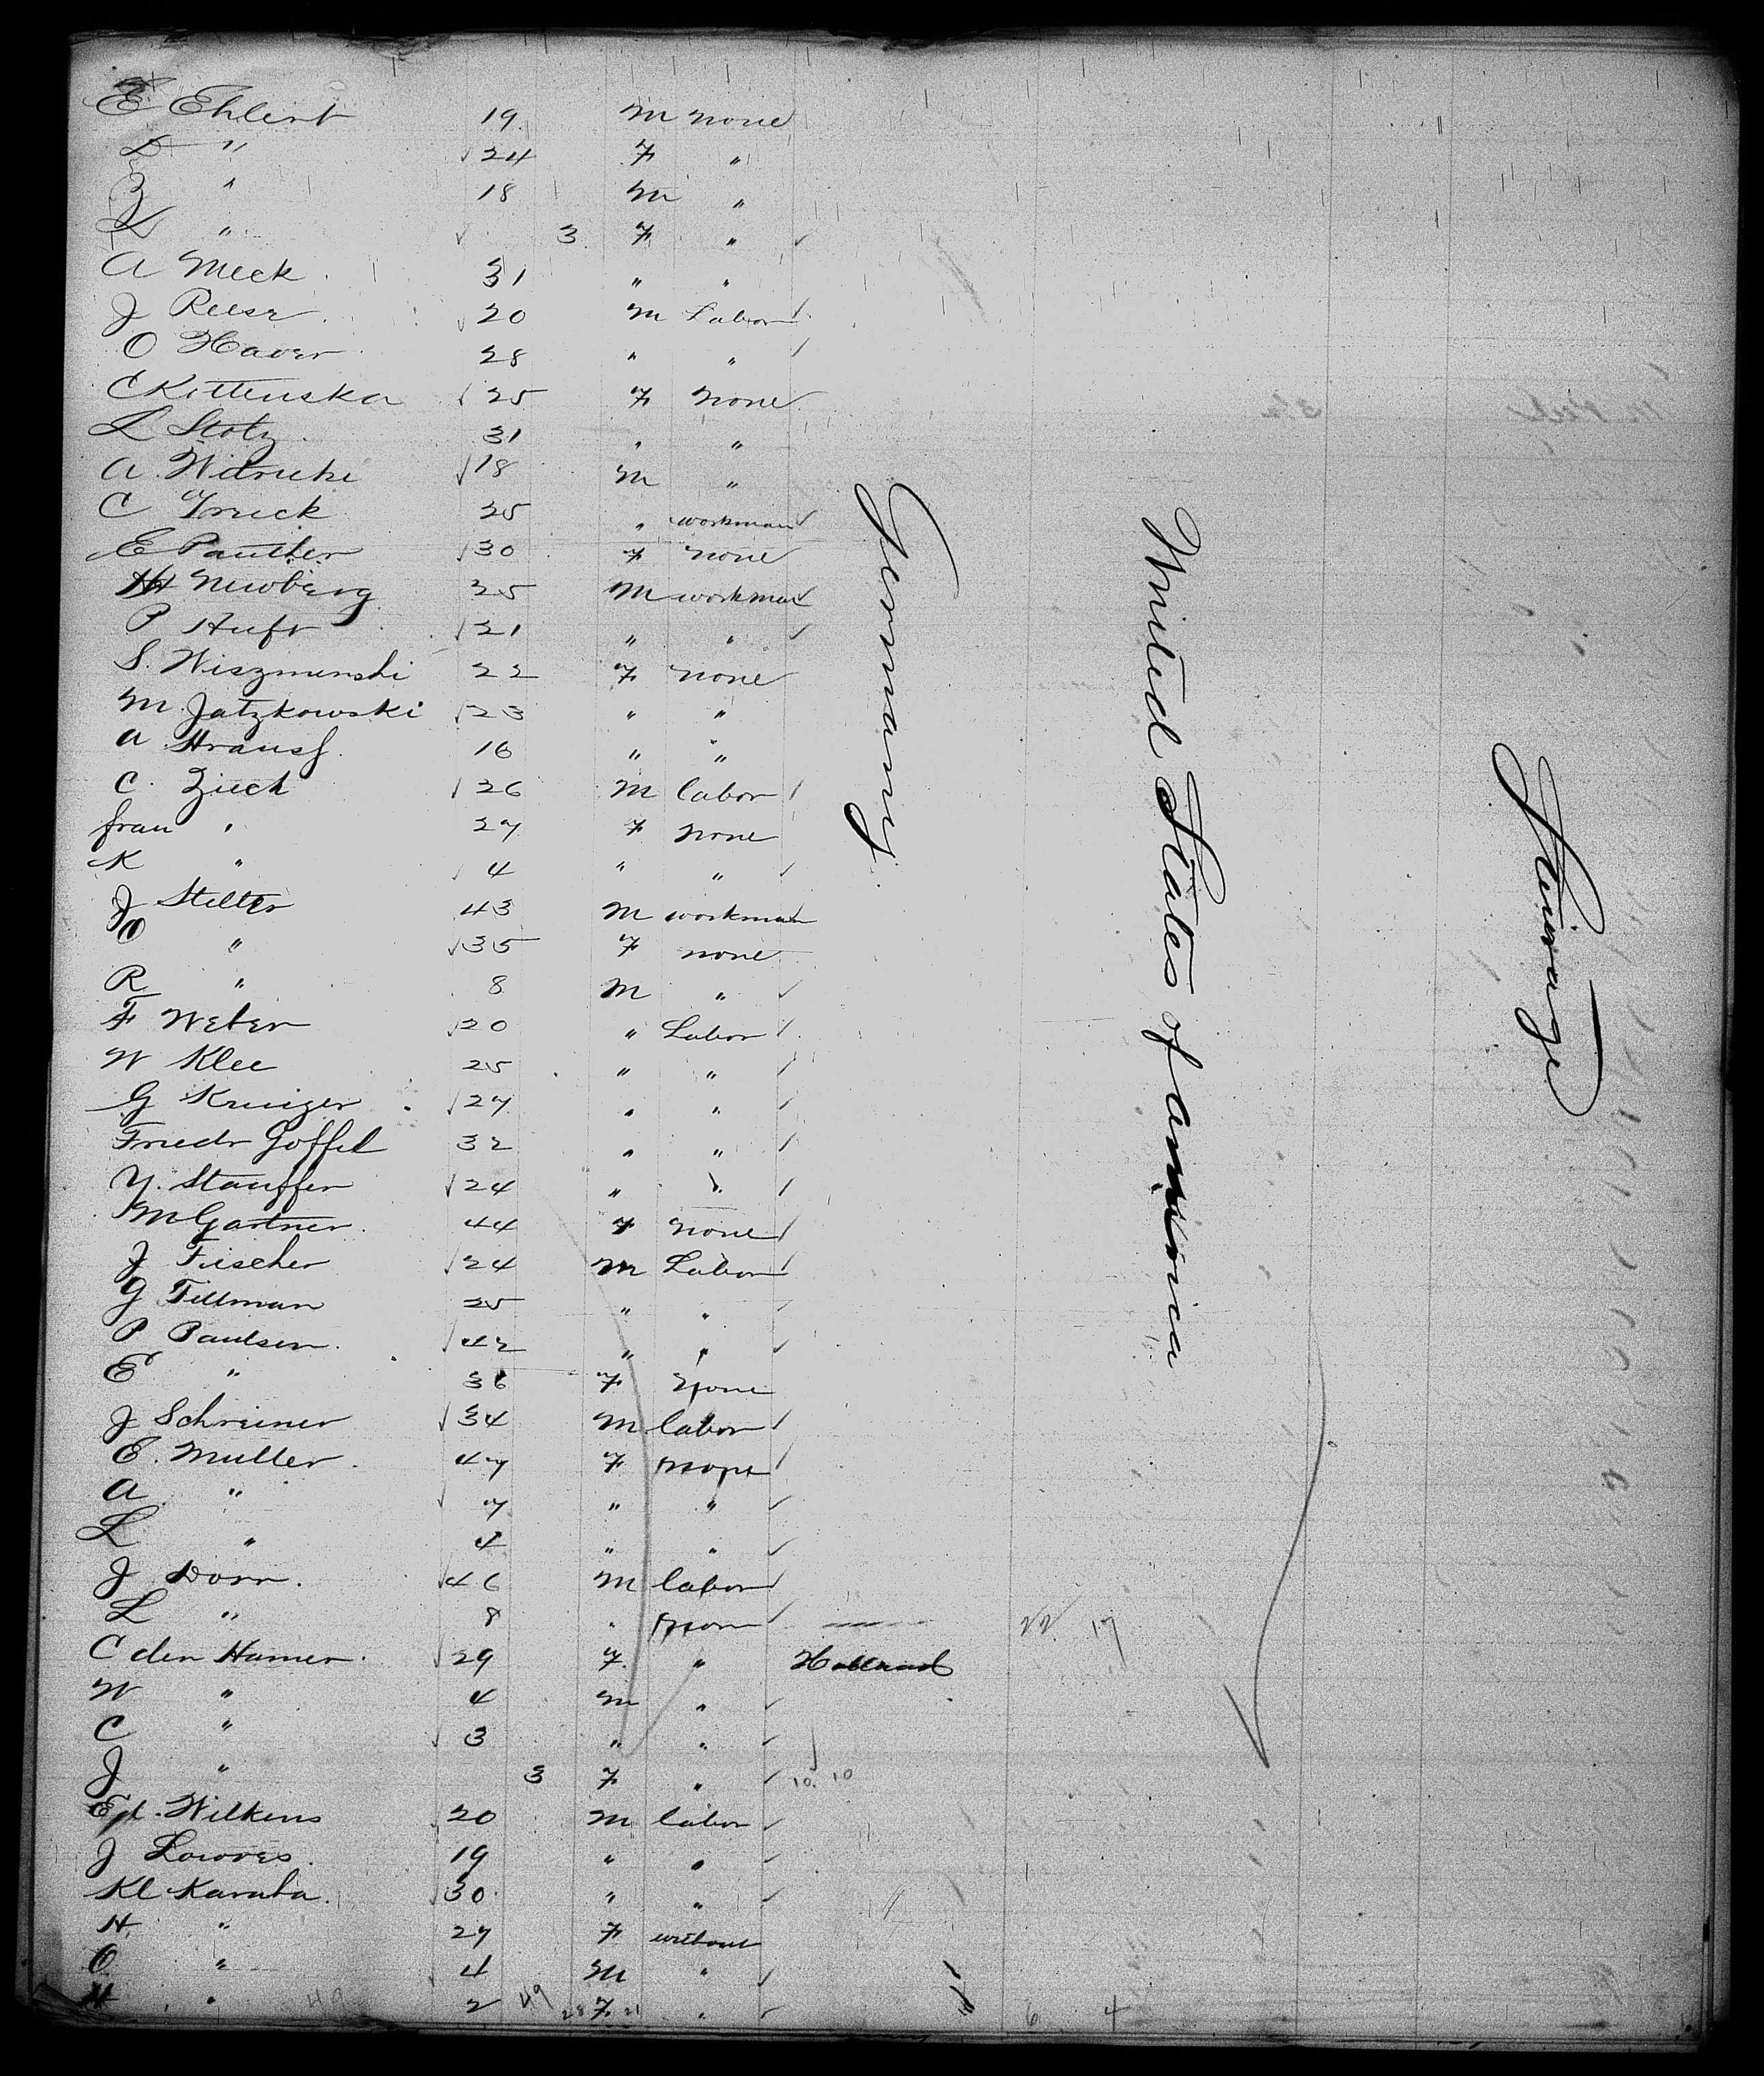 E Ehlert 19 M none
D " 24 F "
Z " 18 M "
K " 3 F "
A Meck 31 " "
J Reese 20 M Labor
O Haver 28 " "
C Kittenska 25 F none
L Stolz 31 " "
A. Widricke 18 M "
C Truck 25 " workman
E Panther 30 F none
H Newberg 25 M workman
P Hufr 21 " "
S. Wiszmenski 22 F none
M. Jatzkowski 23 " "
A 16 " "
C. Ziech 26 M labor
frau " 27 F none
K " 4 " "
J Stelter 43 M workman
O " 35 F none
R " 8 M "
F Weber 20 " Labor
W Klee 25 " "
G Kruizer 27 " "
Friedr Goffel 32 " "
Y. Stauffer 24 " "
M Gartner 44 F none
J Fischer 24 M Labor
G Tillman 25 " "
P Paulsen 42 " "
E " 36 F None
J Schreiner 34 M labor
E. Muller 47 F none
A " 7 " "
L " 4 " "
J Dorn 46 M labor
L " 8 " none 17
C den Hamer 29 F " Holland
W " 4 M "
C " 3 " "
J " 3 F " 10. 10
Ed. Wilkens 20 M labor
J Lowres 19 " "
Kl Karaba 30 " "
H. " 27 F without
O " 4 M "
H " 2 49 28 F 21 " 6 4
Germany
United States of america
Steerage